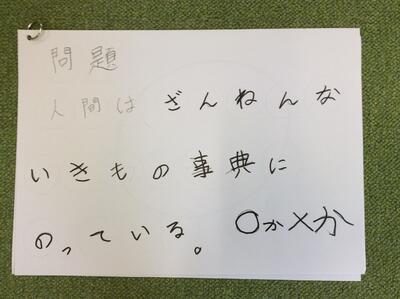 問題
人間は ざんねんな
いきもの事典に
のっている。 ○か×か